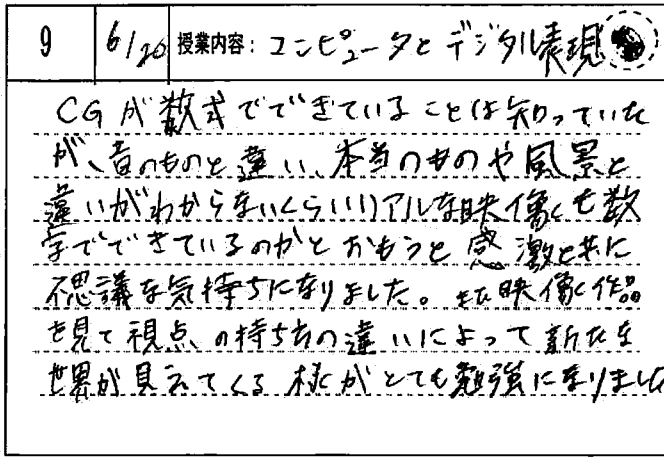 9 6/20 授業内容: コンピュータとデジタル表現
CGが数式でできていることは知っていた
が、昔のものと違い、本当のものや風景と
違いがわからないくらいリアルな映像も数
学でできているのかとおもうと感激と共に
不思議な気持ちになりました。また映像作品
を見て視点の持ち方の違いによって新たな
世界が見えてくる様がとても勉強になりました